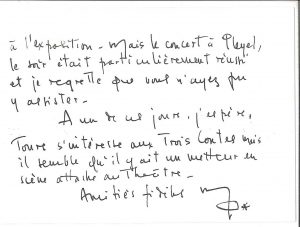 à l'exposition - mais le concert à Pleyel,
le soir était particulièrement réussi
et je regrette que vous n'ayez pu
y assister -
A un de ces jours, j'espère,
Tours s'intéresse aux Trois Contes mais
il semble qu'il y ait un metteur en
scène attaché au Théâtre -
Amitiés fidèles